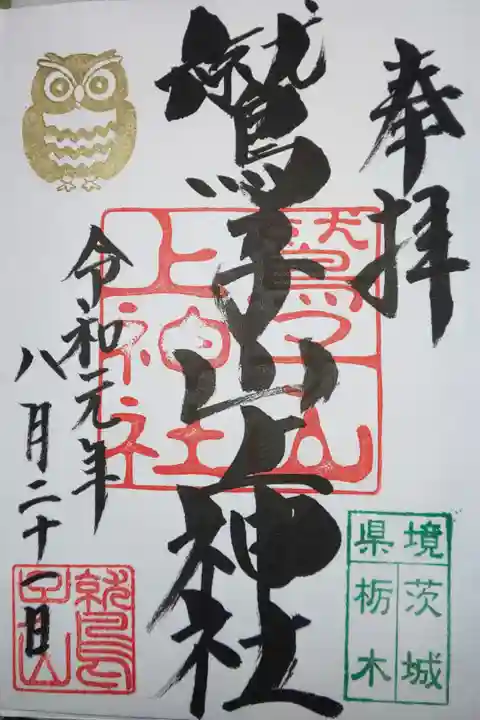 奉拝
鷲子山上神社
鷲子山
上神社
令和元年
八月二十一日
鷲子山
県境
茨城
栃木